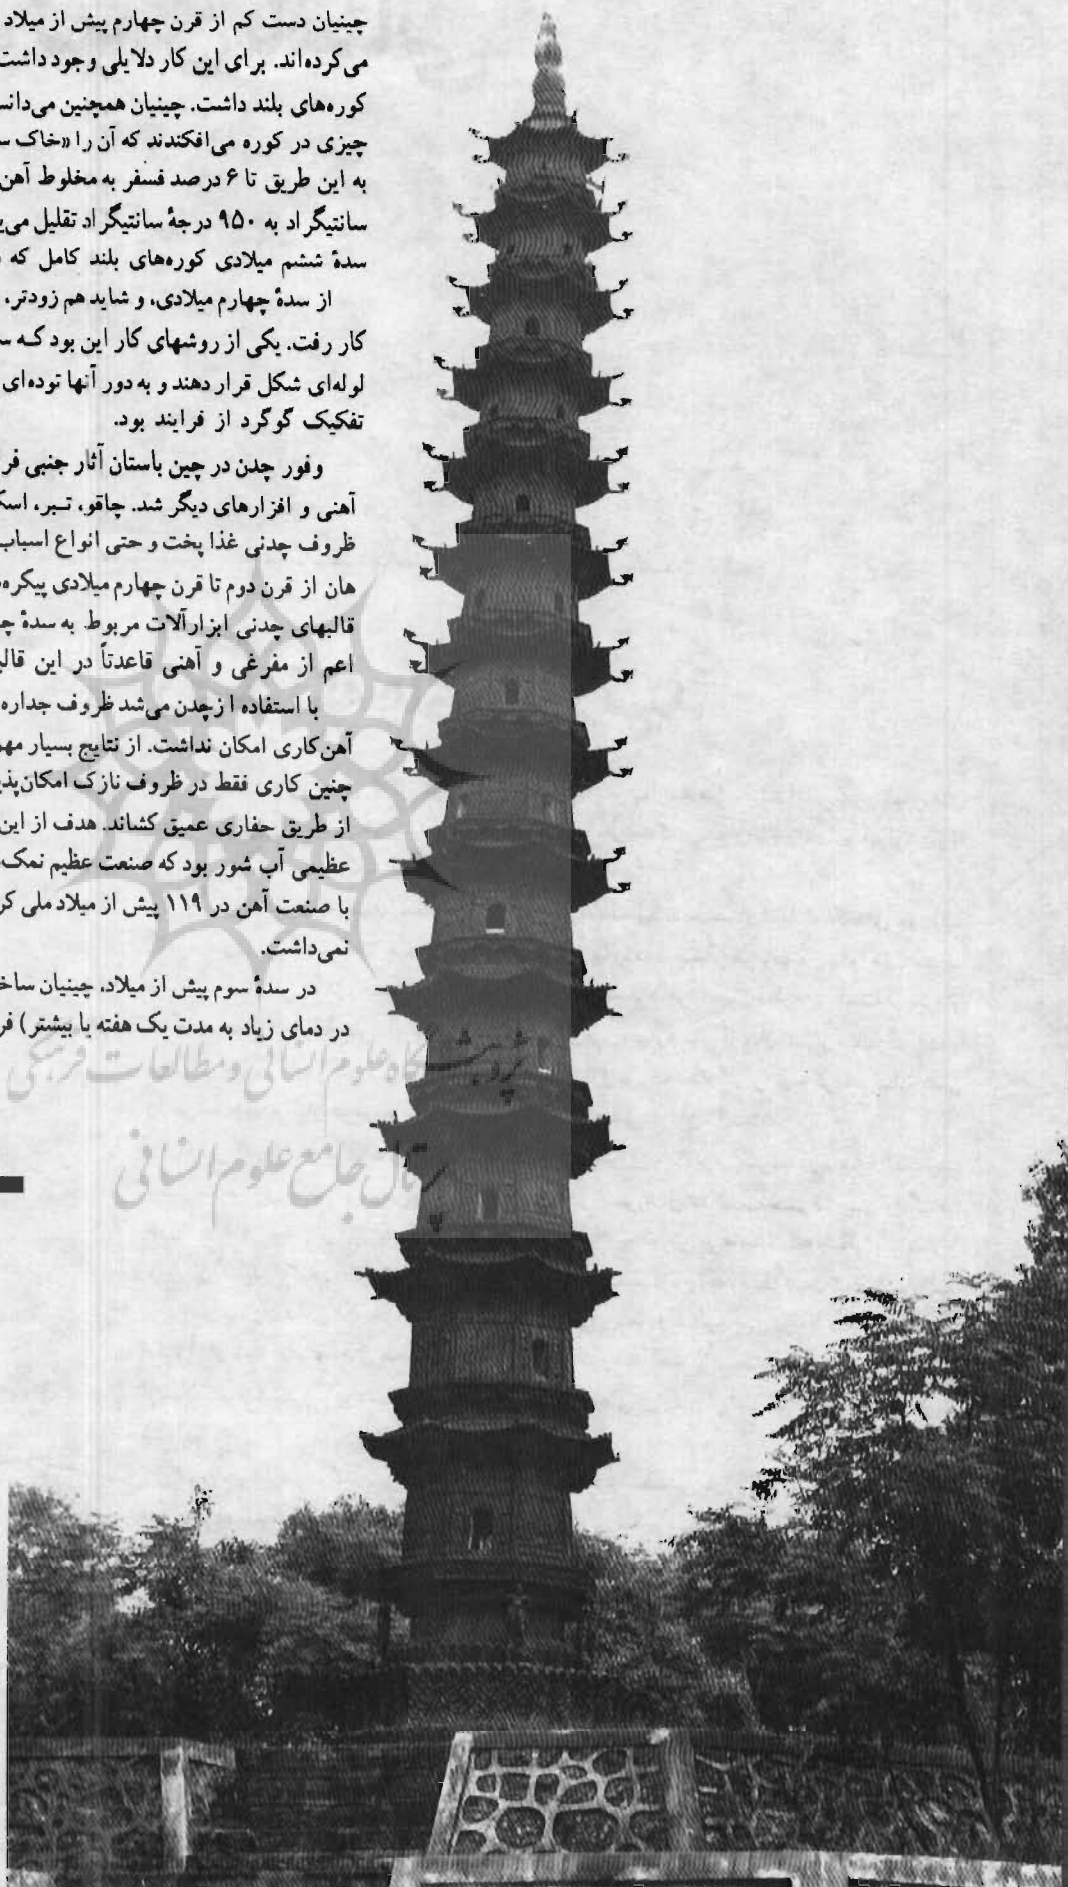 چینیان دست کم از قرن چهارم پیش از میلاد
می‌کرده‌اند. برای این کار دلایلی وجود داشت
کوره‌های بلند داشت. چینیان همچنین می‌دانس
چیزی در کوره می‌افکندند که آن را «خاک س
به این طریق تا ۶ درصد فسفر به مخلوط آهن
سانتیگراد به ۹۵۰ درجهٔ سانتیگراد تقلیل می‌ی
سدهٔ ششم میلادی کوره‌های بلند کامل که
از سدهٔ چهارم میلادی، و شاید هم زودتر،
کار رفت. یکی از روشهای کار این بود که س
لوله‌ای شکل قرار دهند و به دور آنها توده‌ای
تفکیک گوگرد از فرایند بود.
وفور چدن در چین باستان آثار جنبی فر
آهنی و افزارهای دیگر شد. چاقو، تبر، اسک
ظروف چدنی غذا پخت و حتی انواع اسباب
هان از قرن دوم تا قرن چهارم میلادی پیکره
قالبهای چدنی ابزارآلات مربوط به سدهٔ چ
اعم از مفرغی و آهنی قاعدتاً در این قال
با استفاده ازچدن می‌شد ظروف جداره
آهن‌کاری امکان نداشت. از نتایج بسیار مه
چنین کاری فقط در ظروف نازک امکان‌پذ
از طریق حفاری عمیق کشاند. هدف از این
عظیمی آب شور بود که صنعت عظیم نمک
با صنعت آهن در ۱۱۹ پیش از میلاد ملی کر
نمی‌داشت.
در سدهٔ سوم پیش از میلاد، چینیان ساخ
در دمای زیاد به مدت یک هفته یا بیشتر) فر
پژوهشگاه علوم انسانی و مطالعات فرهنگی
پرتال جامع علوم انسانی